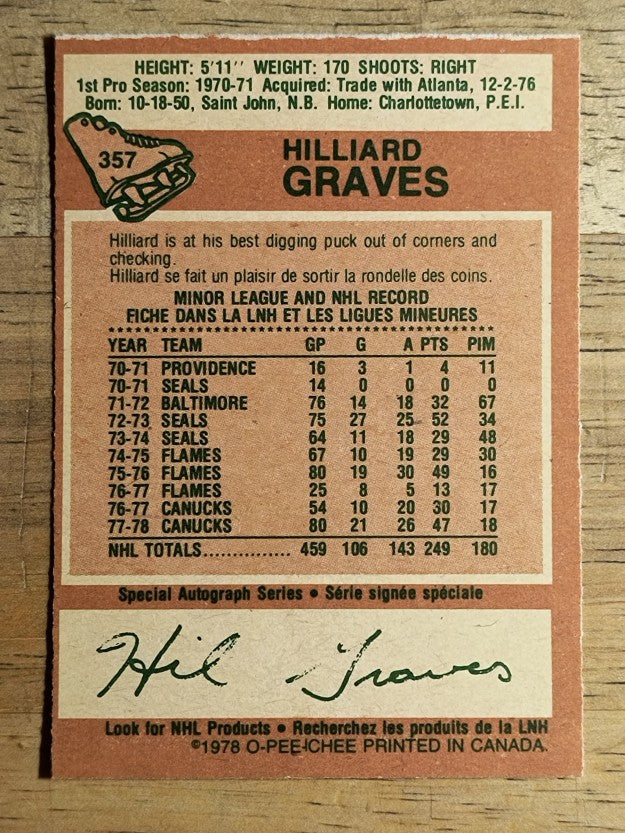 HEIGHT: 5'11'' WEIGHT: 170 SHOOTS: RIGHT
1st Pro Season: 1970-71 Acquired: Trade with Atlanta, 12-2-76
Born: 10-18-50, Saint John, N.B. Home: Charlottetown, P.E.I.
357
HILLIARD
GRAVES
Hilliard is at his best digging puck out of corners and
checking.
Hilliard se fait un plaisir de sortir la rondelle des coins.
MINOR LEAGUE AND NHL RECORD
FICHE DANS LA LNH ET LES LIGUES MINEURES
YEAR TEAM GP G A PTS PIM
70-71 PROVIDENCE 16 3 1 4 11
70-71 SEALS 14 0 0 0 0
71-72 BALTIMORE 76 14 18 32 67
72-73 SEALS 75 27 25 52 34
73-74 SEALS 64 11 18 29 48
74-75 FLAMES 67 10 19 29 30
75-76 FLAMES 80 19 30 49 16
76-77 FLAMES 25 8 5 13 17
76-77 CANUCKS 54 10 20 30 17
77-78 CANUCKS 80 21 26 47 18
NHL TOTALS................ 459 106 143 249 180
Special Autograph Series • Série signée spéciale
Hil Graves
Look for NHL Products • Recherchez les produits de la LNH
©1978 O-PEE-CHEE PRINTED IN CANADA.